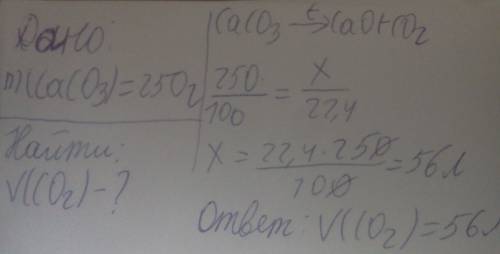 Дано:
m(CaCO₃)=250г
Найти:
V(CO₂)-?
CaCO₃ →t CaO+CO₂
250/100 = x/22,4
x = 22,4·250/100 = 56л
Ответ: V(CO₂)=56л